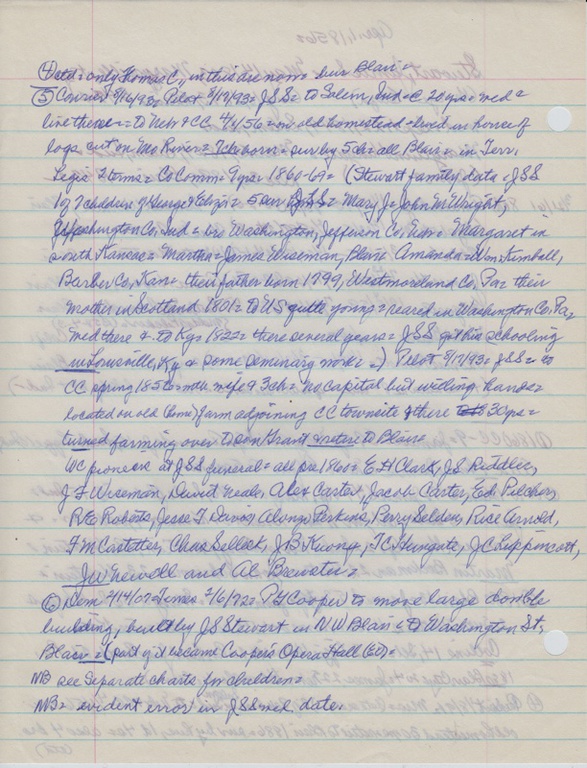 ④ ctd = only Thomas C., in this are now = bur Blair =
⑤ Courier 8/16/93, Pilot 8/17/93 = JSS = to Salem, Ind = c 20 yrs = med &
live there = = to Nebr & CC 4/1/56 = on old homestead = lived in house of
logs cut on Mo River = 7ch born = sur by 5ch = all Blair = in Terr.
Legis 2 terms = Co Comm 9 yrs 1860-69 = (Stewart family data = JSS
1 of 7 children of George & Eliza = 5 sur JSS = Mary J = John McWright,
Washington Co, Ind = bro Washington, Jefferson Co, Neb = Margaret in
south Kansas = Martha = James Wiseman, Blair Amanda = Wm Kimball,
Barber Co, Kan = their father born 1799, Westmoreland Co, Pa = their
mother in Scotland 1801 = to US quite young = reared in Washington Co, Pa,
med there & to Ky = 1822 = there several years = JSS got his schooling
in Louisville, Ky & some seminary work = ) Pilot 8/17/93 = JSS = to
CC spring 1856 = with wife & 3ch = no capital but willing hands =
located on old (home) farm adjoining CC townsite & there 30 yrs =
turned farming over to son Grant & retire to Blair
WC pioneers at JSS funeral = all pre 1860 = EH Clark, JS Riddler,
J F Wiseman, Dewit Neale, Alex Carter, Jacob Carter, Ed Pilcher,
RE Roberts, Jesse T Davis Alonzo Perkins, Perry Selden, Rice Arnold,
F M Castetter, Chas Selleck, J B Kuony, TC Hungate, JC Lippincott,
JW Newell and AC Brewster =
⑥ Dem 4/14/07 = Times 2/6/72 = PG Cooper to move large double
building, built by JS Stewart in NW Blair = to Washington St,
Blair = (part of it became Cooper's Opera Hall (ED) =
NB see Separate charts for children =
NB = evident error in JSS mil data =